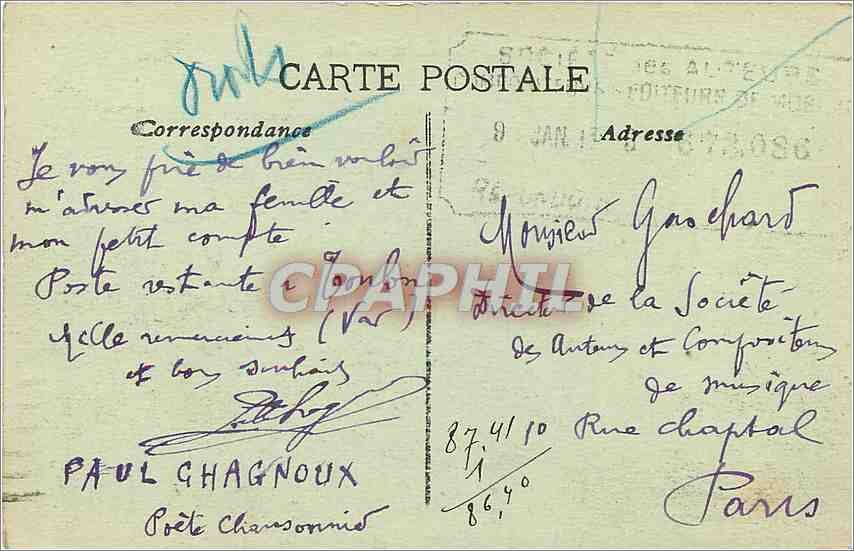 Droits
CARTE POSTALE
Correspondance
Adresse
SOCIÉTÉ des AUTEURS
EDITEURS DE MUS
9 JAN 672,086
Je vous prie de bien vouloir
m'adresser ma feuille et
mon petit compte
Poste restante à Toulon
Mille remerciements (Var)
et bons souhaits
PAUL CHAGNOUX
Poète Chansonnier
Monsieur Gaschard
Directeur de la Société
des Auteurs et Compositeurs
de musique
Rue Chaptal
Paris
87,41 10
1
86,40
CPAPHIL